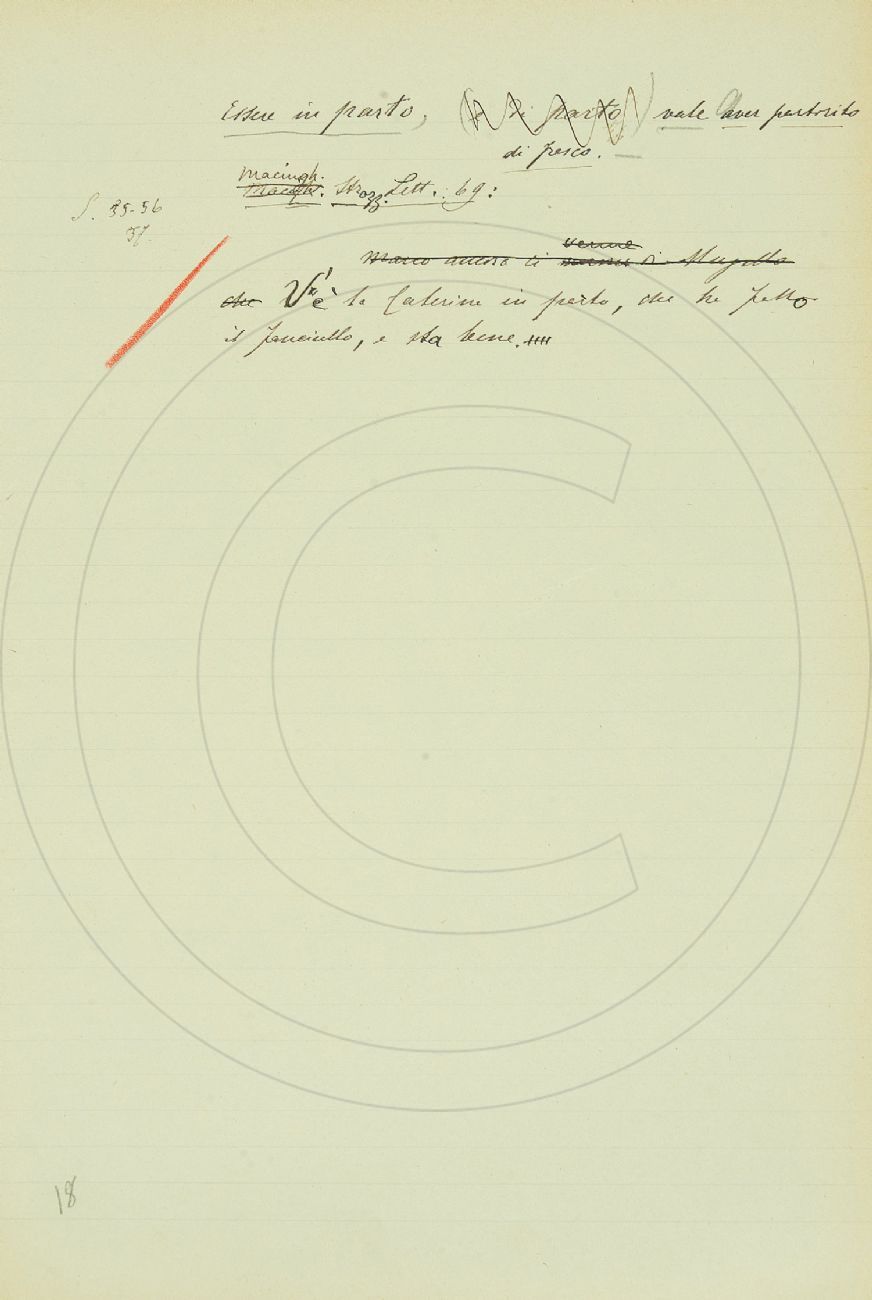 Essere in parto, (e di parto) vale aver partorito
di fresco.
Macingh.
Macingh. Strozz. Lett. 69:
S. 35-56
57.
venne
Marco ancora ci venne di Mugello
che V'è la Caterina in parto, che ha fatto
il fanciullo, e sta bene.
18